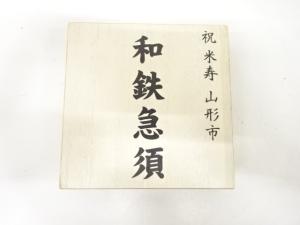 祝 米寿 山形市
和鉄急須